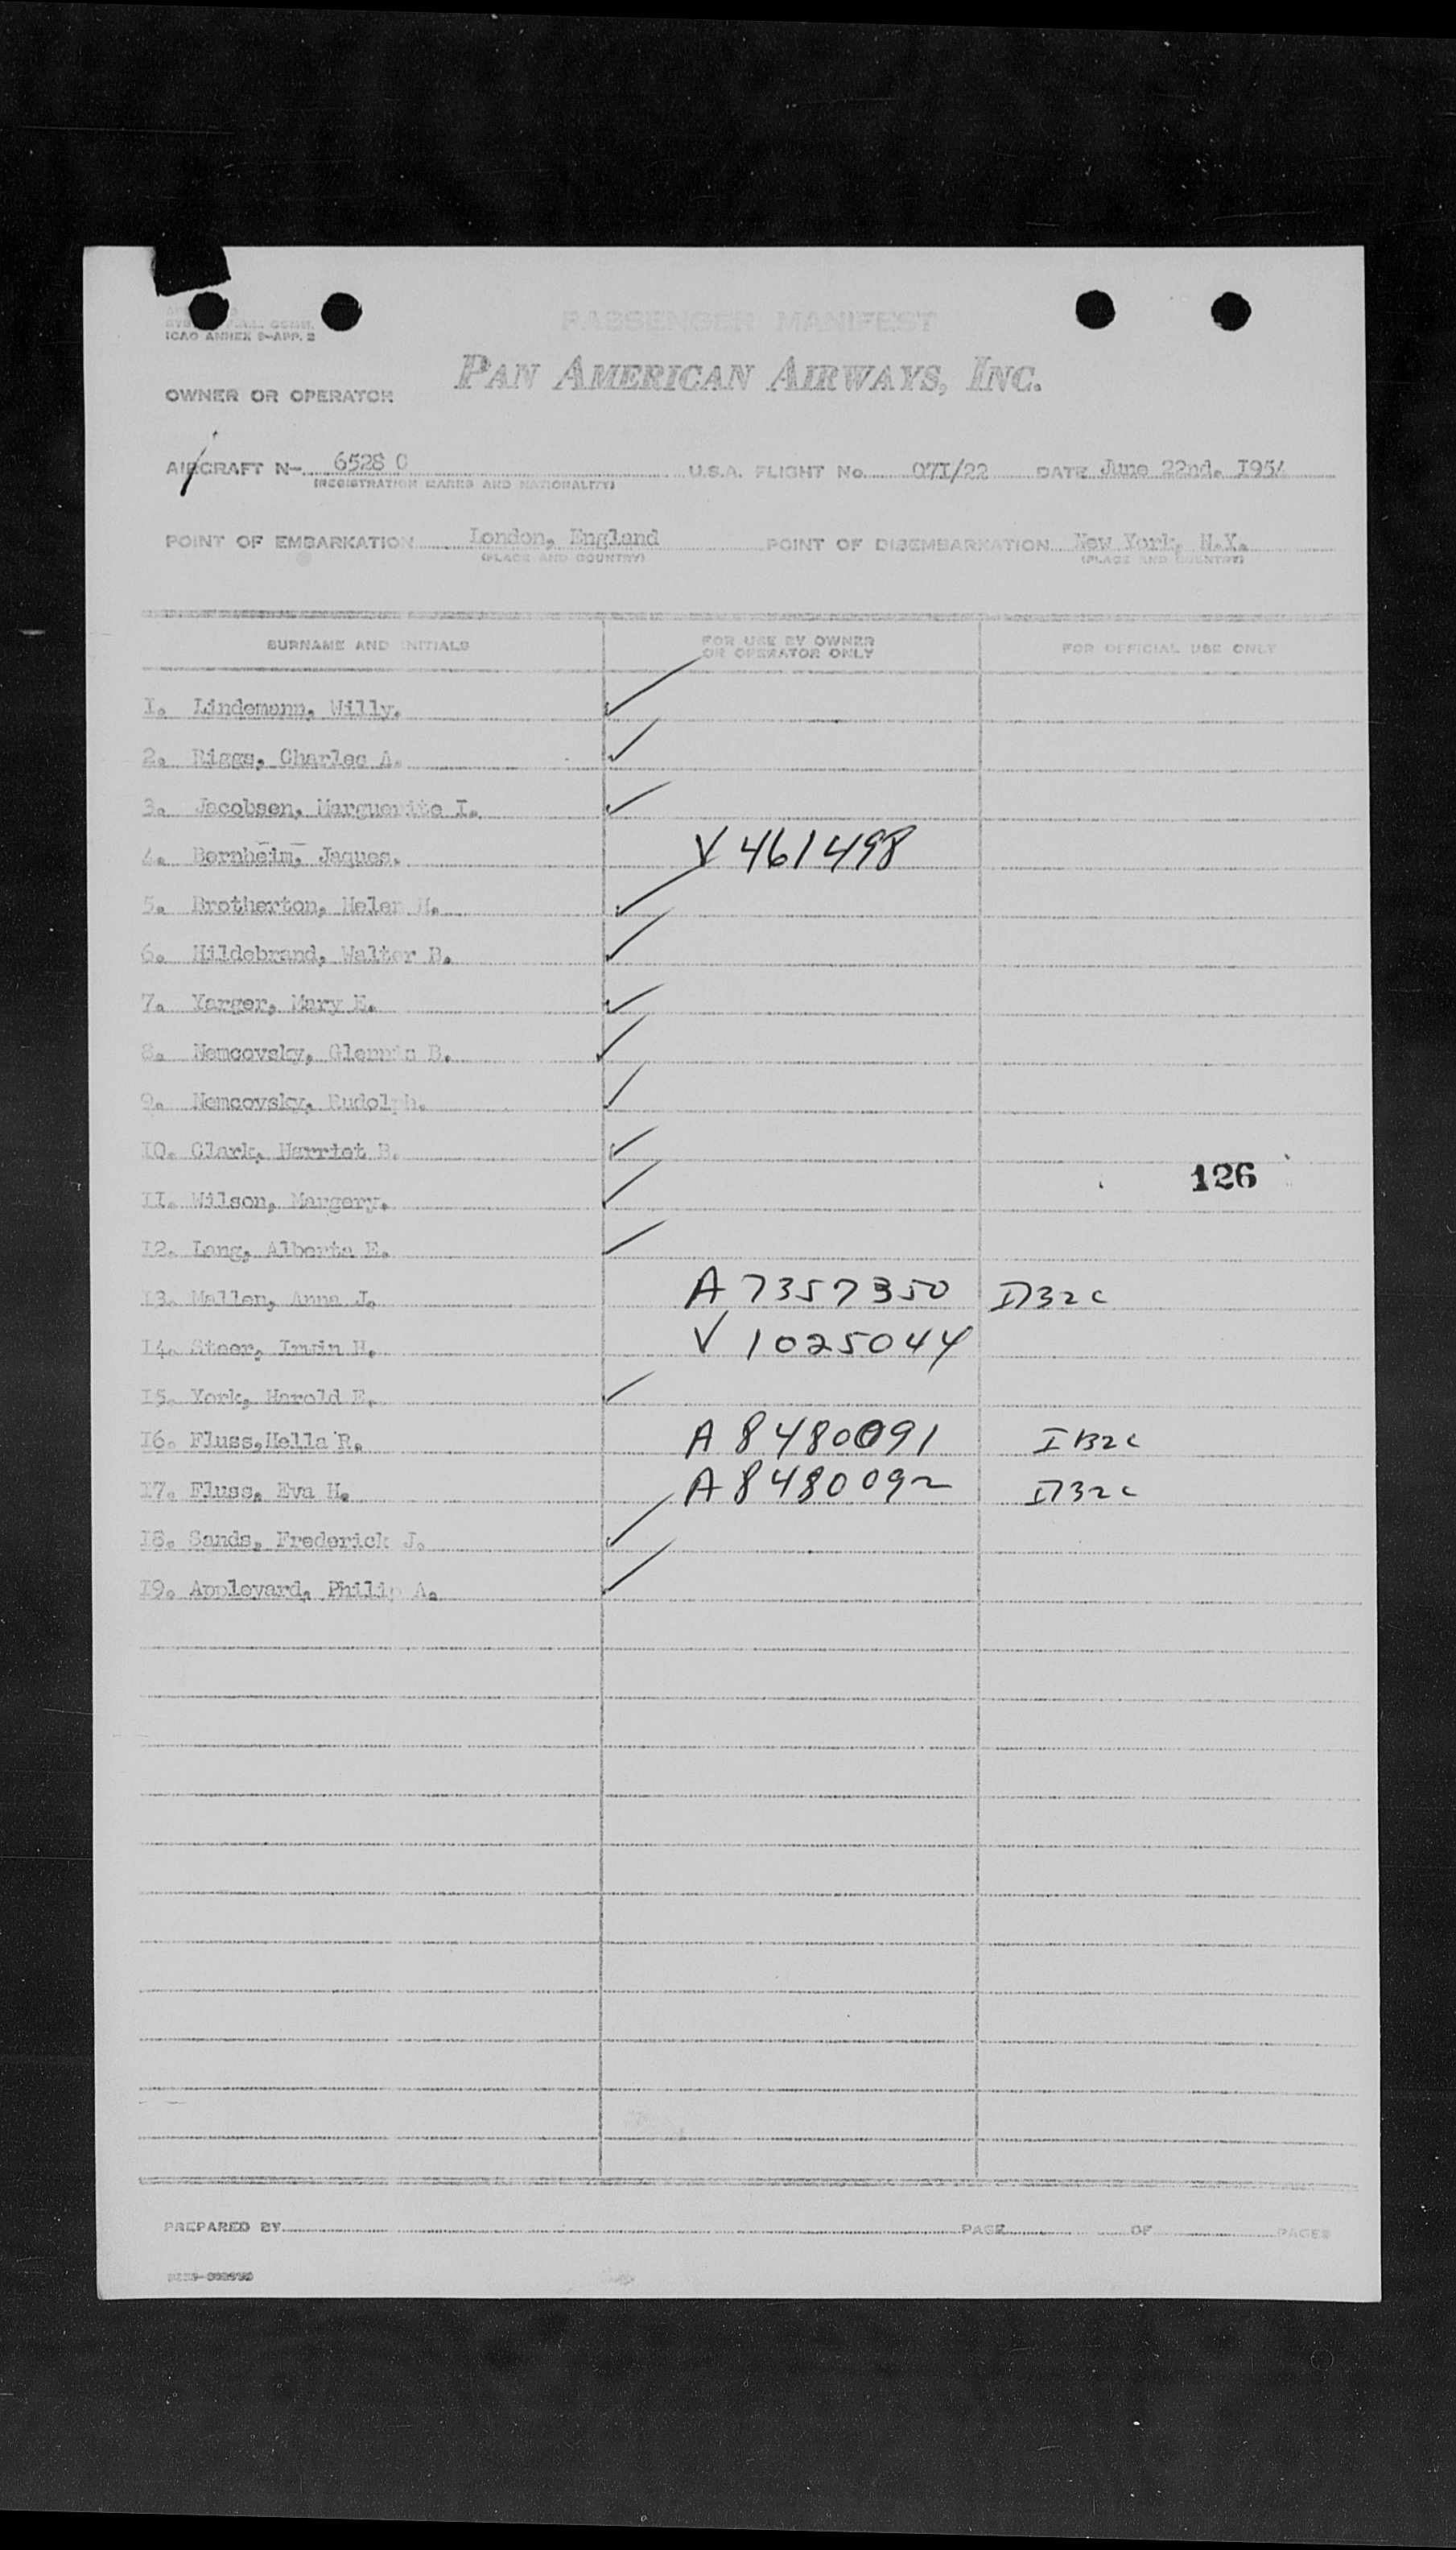 ICAO ANNEX 9-APP. 2
PASSENGER MANIFEST
PAN AMERICAN AIRWAYS, INC.
OWNER OR OPERATOR
AIRCRAFT N- 6528 C U.S.A. FLIGHT No. 071/22 DATE June 22nd. 1954
(REGISTRATION MARKS AND NATIONALITY)
POINT OF EMBARKATION London, England POINT OF DISEMBARKATION New York, N.Y.
(PLACE AND COUNTRY) (PLACE AND COUNTRY)
SURNAME AND INITIALS FOR USE BY OWNER OR OPERATOR ONLY FOR OFFICIAL USE ONLY
1. Lindemann, Willy.
2. Riggs, Charles A.
3. Jacobsen, Marguerite I.
4. Bernheim, Jaques. V 461498
5. Brotherton, Helen M.
6. Hildebrand, Walter B.
7. Yarger, Mary E.
8. Nemcovsky, Glennis B.
9. Nemcovsky, Rudolph.
10. Clark, Harriet B.
126
11. Wilson, Margery.
12. Lang, Alberta E.
13. Mallen, Anna J. A 7357350
14. Steer, Irwin H. V 1025044
15. York, Harold E.
16. Fluss, Hella R. A 8480091
17. Fluss, Eva H. A 8480092
18. Sands, Frederick J.
19. Appleyard, Philip A.
PREPARED BY PAGE OF PAGES